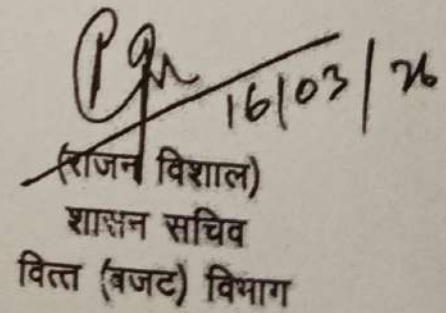 16/03/26
(राजन विशाल)
शासन सचिव
वित्त (बजट) विभाग